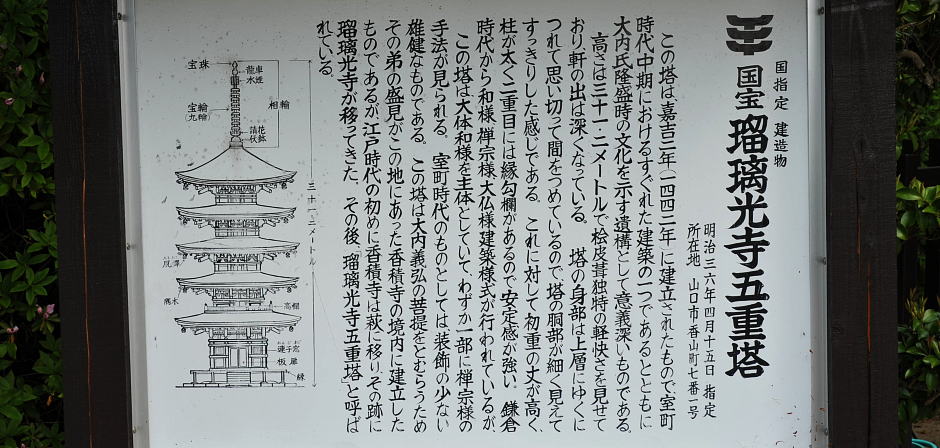 国指定 建造物
国宝 瑠璃光寺五重塔
明治三六年四月十五日 指定
所在地 山口市香山町七番一号
この塔は嘉吉二年(一四四二年)に建立されたもので室町
時代中期におけるすぐれた建築の一つであるとともに
大内氏隆盛時の文化を示す遺構として意義深いものである。
高さは三十一・二メートルで桧皮葺独特の軽快さを見せて
おり軒の出は深くなっている。 塔の身部は上層にゆくに
つれて思い切って間をつめているので塔の胴部が細く見えて
すっきりした感じである。 これに対して初重の丈が高く、
柱が太く二重目には縁勾欄があるので安定感が強い。 鎌倉
時代から和様、禅宗様、大仏様建築様式が行われているが
この塔は大体和様を主体としていて、わずか一部に禅宗様の
手法が見られる。 室町時代のものとしては装飾の少ない
雄健なものである。 この塔は大内義弘の菩提をとむらうため
その弟の盛見がこの地にあった香積寺の境内に建立した
ものであるが、江戸時代の初めに香積寺は萩に移り、その跡に
瑠璃光寺が移ってきた。 その後、「瑠璃光寺五重塔」と呼ば
れている。
宝珠
龍車
水煙
相輪
宝輪
(九輪)
請花
伏鉢
三十一・二メートル
風鐸
隅木
高欄
連子窓
板扉
縁